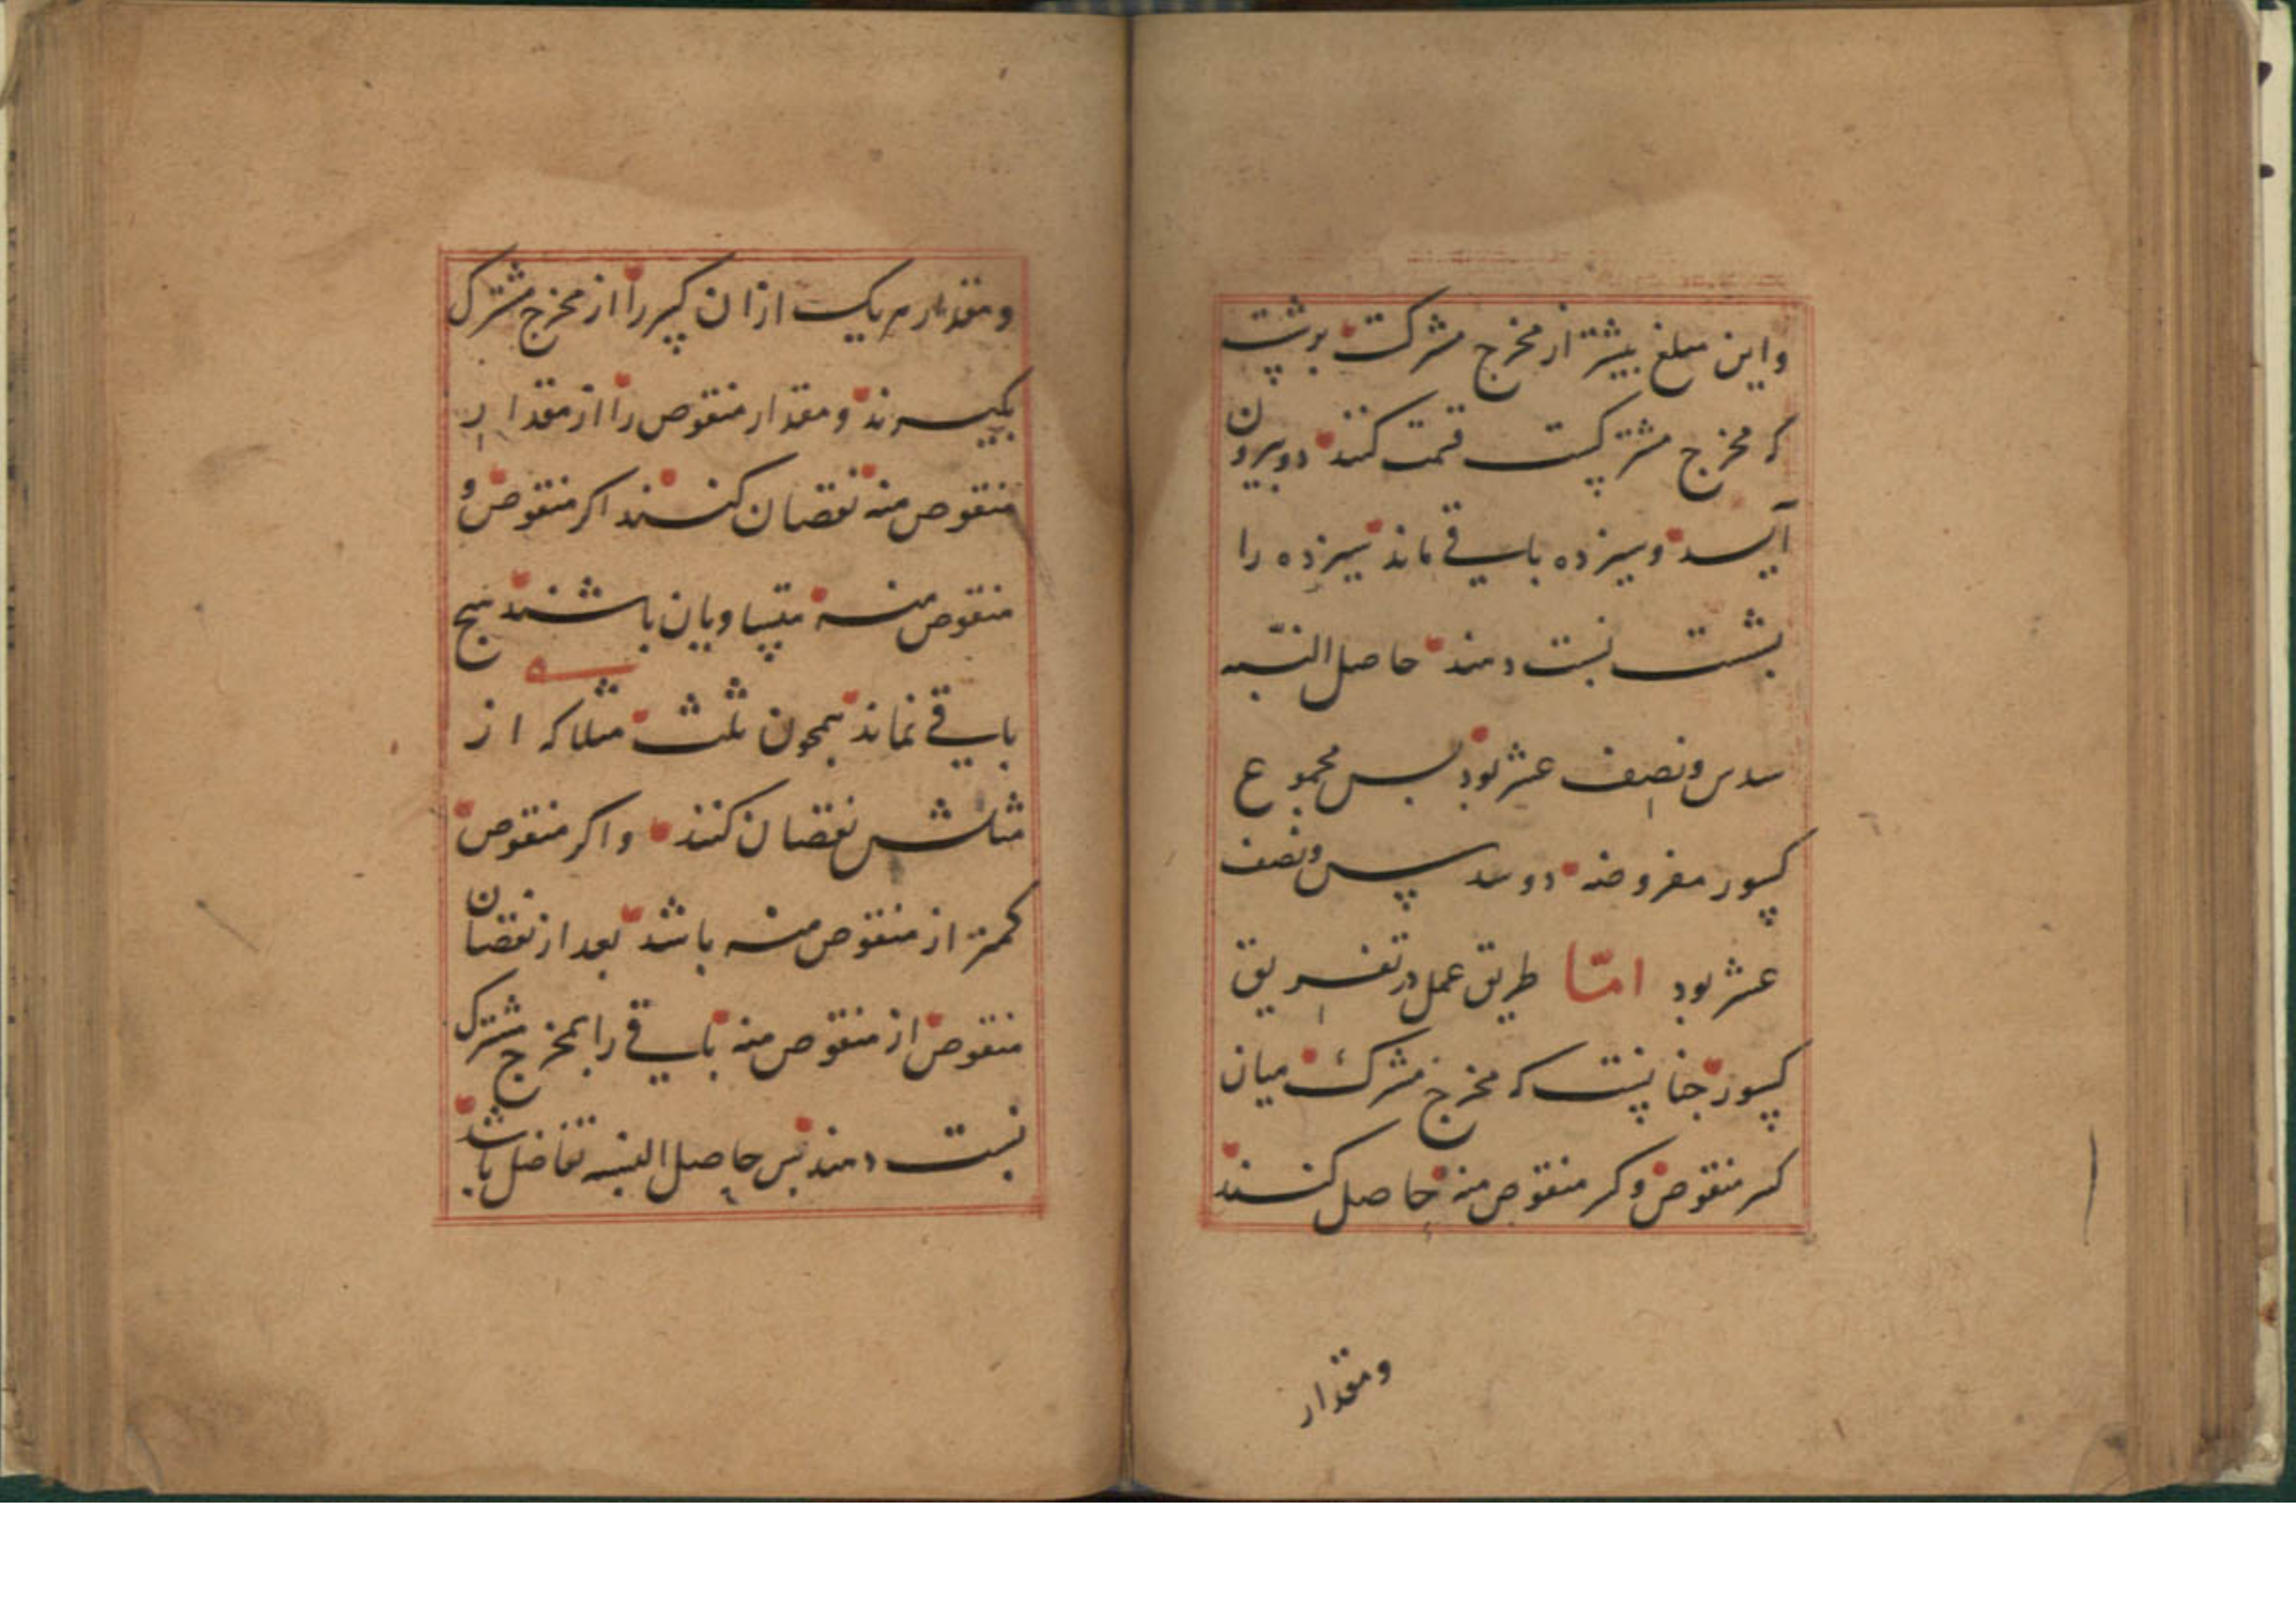 واین مبلغ بیشتر از مخرج مشترکست بر شست
که مخرج مشترکست قسمت کنند دو بیرون
آید و سیزده باقی ماند سیزده را
بشست نسبت دهند حاصل النسبه
سدس و نصف عشر بود بس مجموع
کسور مفروضه دو و سدس و نصف
عشر بود امّا طریق عمل در تفریق
کسور جنانست که مخرج مشترک میان
کسر منقوص و کسر منقوص منه حاصل کنند
ومقدار
ومقدار هر یک از ان کسر را از مخرج مشترک
بکیرند و مقدار منقوص را از مقدار
منقوص منه نقصان کنند اکر منقوص و
منقوص منه متساویان باشند هیج
باقی نماند همجون ثلث مثلا که از
مثلش نقصان کنند واکر منقوص
کمتر از منقوص منه باشد بعد از نقصان
منقوص از منقوص منه باقی را بمخرج مشترک
نسبت دهند بس حاصل النسبه تفاضل باشد